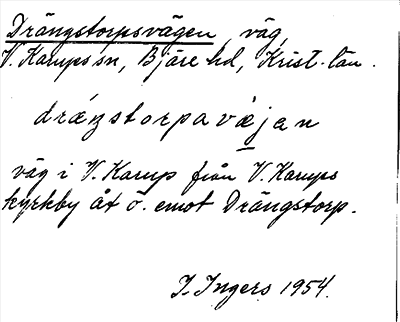 Drängstorpsvägen, väg,
V. Karups sn, Bjäre hd, Krist. län.
drä́ŋstorpavä̀jan
väg i V. Karup från V. Karups
kyrkby åt ö. emot Drängstorp.
I. Ingers 1954.